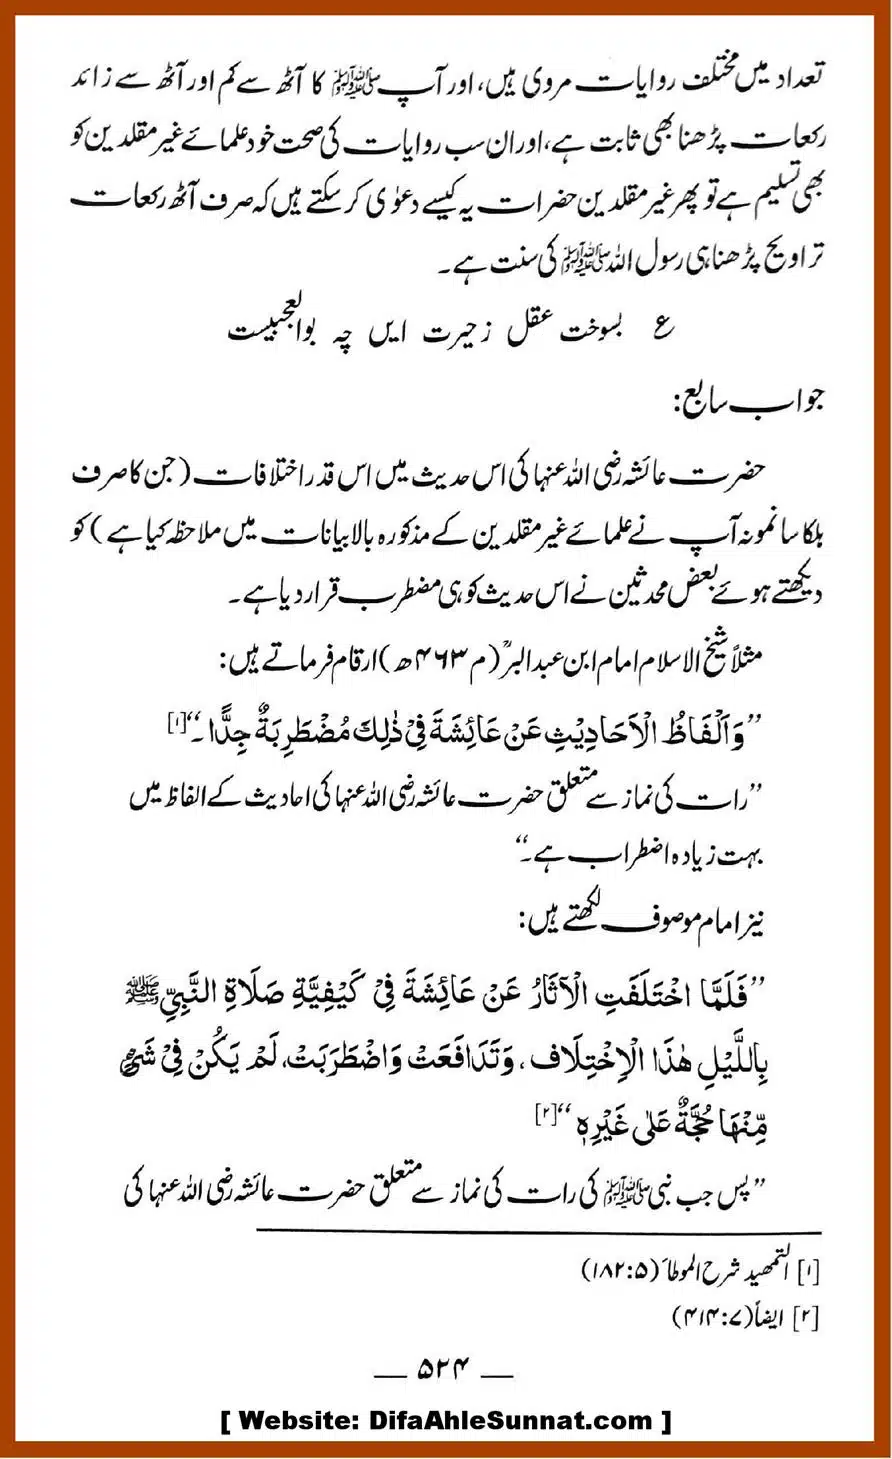 تعداد میں مختلف روایات مروی ہیں، اور آپ ﷺ کا آٹھ سے کم اور آٹھ سے زائد
رکعات پڑھنا بھی ثابت ہے، اور ان سب روایات کی صحت خود علمائے غیر مقلدین کو
بھی تسلیم ہے تو پھر غیر مقلدین حضرات یہ کیسے دعوٰی کر سکتے ہیں کہ صرف آٹھ رکعات
تراویح پڑھنا ہی رسول اللہ ﷺ کی سنت ہے۔
ع بسوخت عقل زحیرت ایں چہ بوالعجبیست
جواب سابع:
حضرت عائشہ رضی اللہ عنہا کی اس حدیث میں اس قدر اختلافات (جن کا صرف
ہلکا سا نمونہ آپ نے علمائے غیر مقلدین کے مذکورہ بالا بیانات میں ملاحظہ کیا ہے) کو
دیکھتے ہوئے بعض محدثین نے اس حدیث کو ہی مضطرب قرار دیا ہے۔
مثلاً شیخ الاسلام امام ابن عبدالبرؒ (م ۴۶۳ھ) ارقام فرماتے ہیں:
”وَاَلْفَاظُ الْاَحَادِيْثِ عَنْ عَائِشَةَ فِيْ ذٰلِكَ مُضْطَرِبَةٌ جِدًّا۔“[۱]
”رات کی نماز سے متعلق حضرت عائشہ رضی اللہ عنہا کی احادیث کے الفاظ میں
بہت زیادہ اضطراب ہے۔“
نیز امام موصوف لکھتے ہیں:
”فَلَمَّا اخْتَلَفَتِ الْآثَارُ عَنْ عَائِشَةَ فِيْ كَيْفِيَّةِ صَلَاةِ النَّبِيِّ ﷺ
بِاللَّيْلِ هٰذَا الْاِخْتِلَاف، وَتَدَافَعَتْ وَاضْطَرَبَتْ، لَمْ يَكُنْ فِيْ شَيْءٍ
مِّنْهَا حُجَّةٌ عَلٰى غَيْرِهٖ“[۲]
”پس جب نبی ﷺ کی رات کی نماز سے متعلق حضرت عائشہ رضی اللہ عنہا کی
[۱] التمہید شرح الموطأ (۱۸۲:۵)
[۲] ایضاً (۴۱۴:۷)
— ۵۲۴ —
[ Website: DifaAhleSunnat.com ]